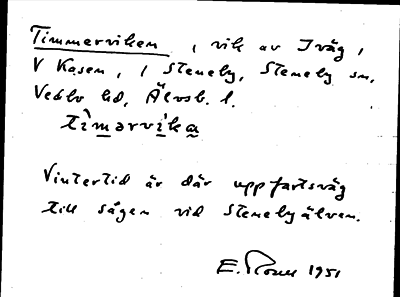 Timmerviken, vik av Iväg,
V Kasen, i Steneby, Steneby sn,
Vedbo hd, Älvsb. l.
tìmərvíka
Vintertid är där uppfartsväg
till sågen vid Stenebyälven.
E. 1951